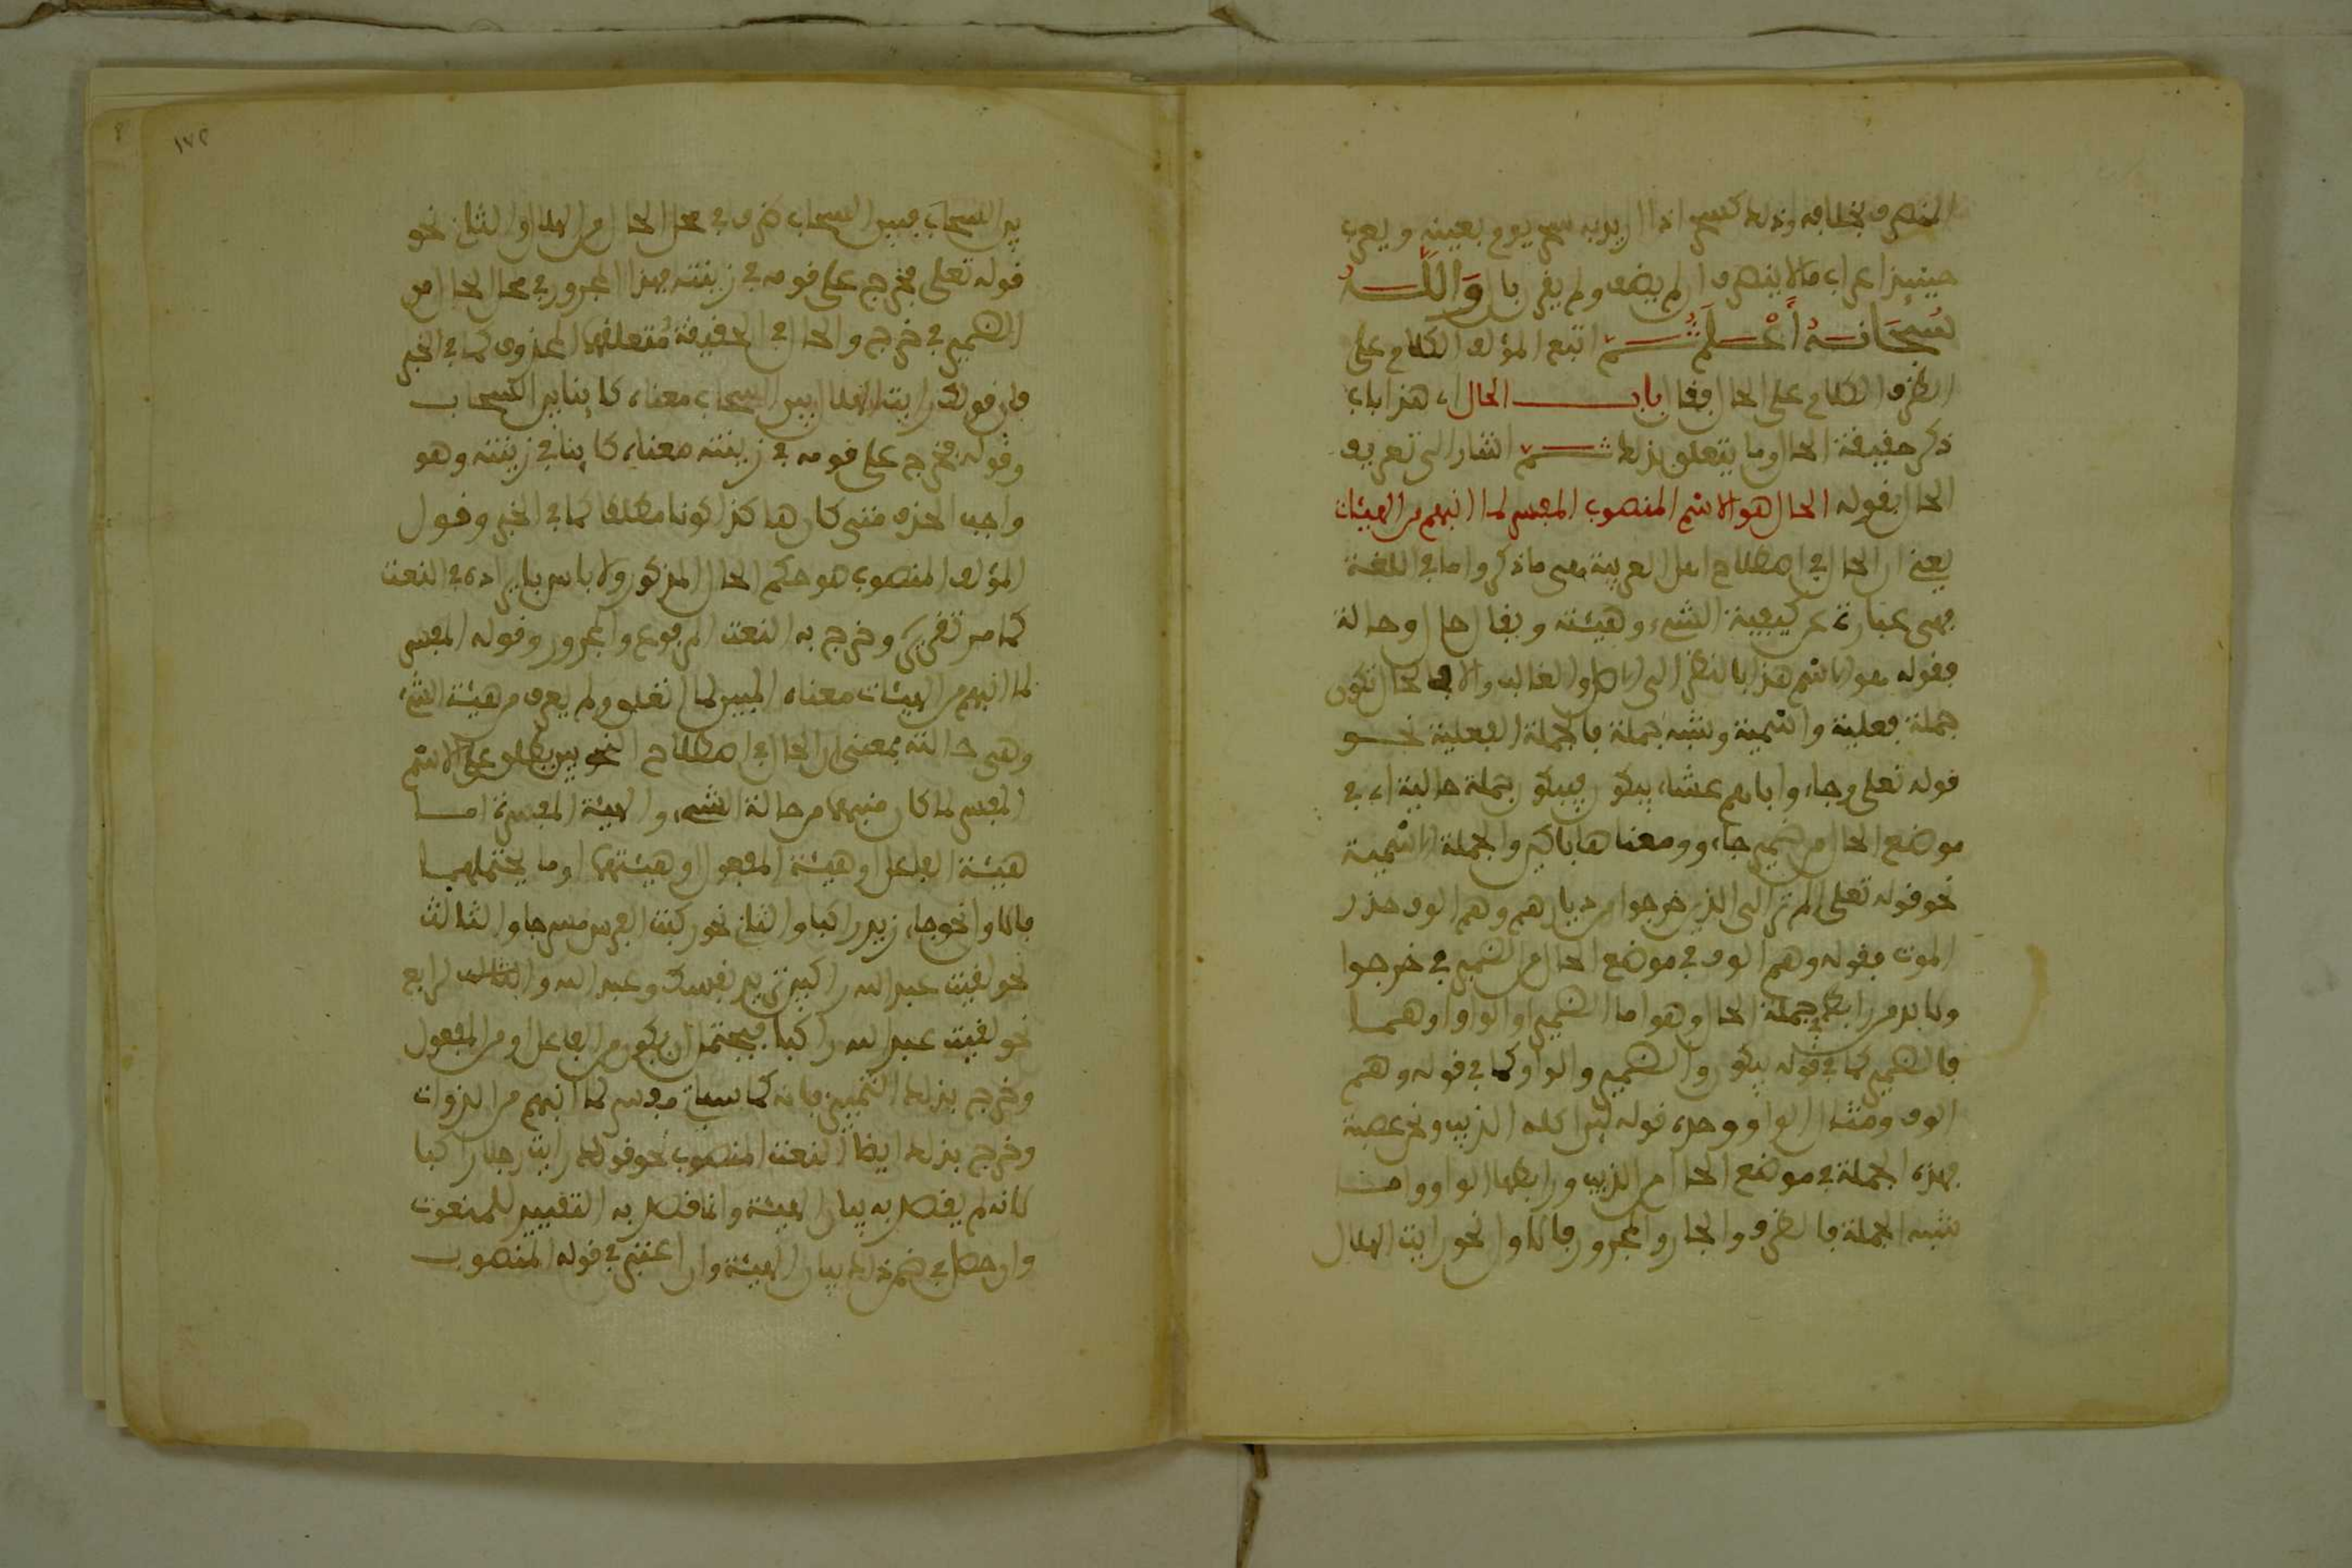 المنصرف بخلافه وذلك كسحر اذا اريد به سحر يوم بعينه ويعرب
حينيذ اعراب ما لا ينصرف ان لم يضف ولم يقرن بال وَاللَّهُ
سُبْحَانَهُ أَعْلَمُ ثم اتبع المؤلف الكلام على
الظرف الكلام على الحال فقال باب الحال اي هذا باب
ذكر حقيقة الحال وما يتعلق بذلك ثم اشار الى تعريف
الحال بقوله الحال هو الاسم المنصوب المفسر لما انبهم من الهيئات
يعني ان الحال في اصطلاح اهل العربية هي ما ذكر واما في اللغة
فهي عبارة عن كيفية الشيء وهيئته ويقال حال وحالة
فقوله هو الاسم هذا بالنظر الى الاصل والغالب والا فالحال تكون
جملة فعلية واسمية وشبه جملة فالجملة الفعلية نحو
قوله تعلى وجاءوا اباهم عشاء يبكون فيبكون جملة حالية اي في
موضع الحال من ضمير جاءوا ومعناها باكين والجملة الاسمية
نحو قوله تعلى الم تر الى الذين خرجوا من ديارهم وهم الوف حذر
الموت فقوله وهم الوف في موضع الحال من الضمير في خرجوا
ولا بد من رابط في جملة الحال وهو اما الضمير او الواو او هما
فالضمير كما في قوله يبكون والضمير والواو كما في قوله وهم
الوف ومثال الواو وحده قوله لين اكله الذيب ونحن عصبة
فهذه الجملة في موضع الحال من الذيب ورابطها الواو واما
شبه الجملة فالظرف والجار والمجرور فالاول نحو رايت الهلال
١٧٢
بين السحاب فبين السحاب ظرف في محل الحال من الهلال والثاني نحو
قوله تعلى فخرج على قومه في زينته فهذا المجرور في محل الحال من
الضمير في خرج والحال في الحقيقة متعلقهما المحذوف كما في الخبر
فان قولك رايت الهلال بين السحاب معناه كاينا بين السحاب
وقوله فخرج على قومه في زينته معناه كاينا في زينته وهو
واجب الحذف متى كان هاكذا كونا مطلقا كما في الخبر وقول
المؤلف المنصوب هو حكم الحال المذكور ولا باس بايراده في النعت
كما مر تقريره وخرج به النعت المرفوع والمجرور وقوله المفسر
لما انبهم من الهيئات معناه المبين لما انغلق ولم يعرف من هيئة الشيء
وهي حالته بمعنى ان الحال في اصطلاح النحويين يطلق على الاسم
المفسر لما كان منبهما من حالة الشيء والهيئة المفسرة اما
هيئة الفاعل او هيئة المفعول او هيئتهما او ما يحتملهما
فالاول نحو جاء زيد راكبا والثاني نحو ركبت الفرس مسرجا والثالث
نحو لقيت عبد الله راكبين تريد نفسك وعبد الله والرابع
نحو لقيت عبد الله راكبا فيحتمل ان يكون من الفاعل او من المفعول
وخرج بذلك التمييز فانه كما سياتي مفسر لما انبهم من الذوات
وخرج بذلك ايضا النعت المنصوب نحو قولك رايت رجلا راكبا
لانه لم يقصد به بيان الهيئة وانما قصد به التقييد للمنعوت
وان حصل في ضمن ذلك بيان الهيئة وان اعتبر في قوله المنصوب